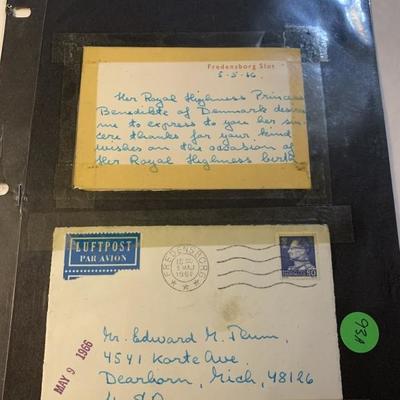 Fredensborg Slot
5-5-66.
Her Royal Highness Princess
Benedikte of Denmark desires
me to express to you her sin
cere thanks for your kind
wishes on the occasion of
Her Royal Highness' birth
LUFTPOST
PAR AVION
FREDENSBORG
5 MAJ
1966
90
MAY 9 1966
Mr. Edward M. Plum,
4541 Korte Ave.
Dearborn, Mich, 48126
U.S.A.
93A